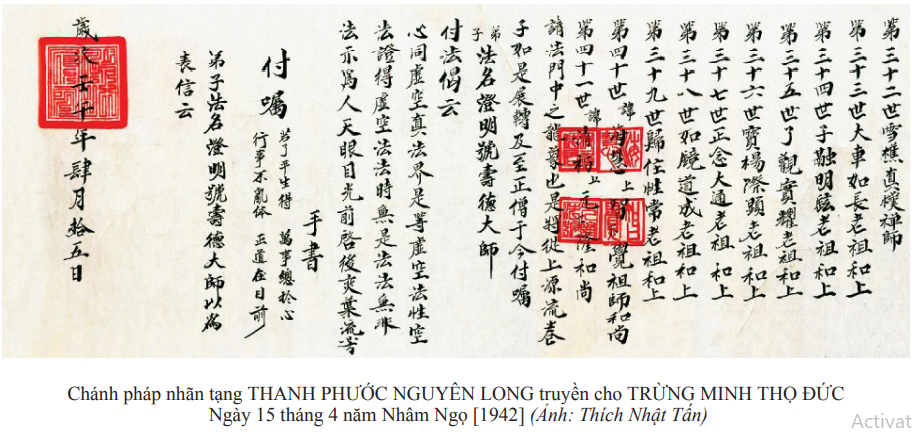 第三十二世雪樵真樸禪師
第三十三世大車如長老祖和上
第三十四世子融明胘老祖和上
第三十五世了觀實耀老祖和上
第三十六世寶楊際顕老祖和上
第三十七世正念大通老祖和上
第三十八世如鏡道成老祖和上
第三十九世歸住性常老祖和上
第四十世諱上覺祖師和尚
第四十一世諱清上隆和尚
請法門中之龍也是將從上源流卷
子如是展轉及至正僧于今付囑
弟子法名澄明號壽德大師
付法偈云
心同虛空真法界是等虛空法性空
法證得虛空法法時無是法法無非
法示為人天眼目光前啓後奕葉流芳
手書
付囑
了平生得萬事總於心
行事不亂体正道在目前
弟子法名澄明號壽德大師以為
表信云
歲次壬午年肆月拾五日
Chánh pháp nhãn tạng THANH PHƯỚC NGUYÊN LONG truyền cho TRỪNG MINH THỌ ĐỨC
Ngày 15 tháng 4 năm Nhâm Ngọ [1942] (Ảnh: Thích Nhật Tấn)
Activat